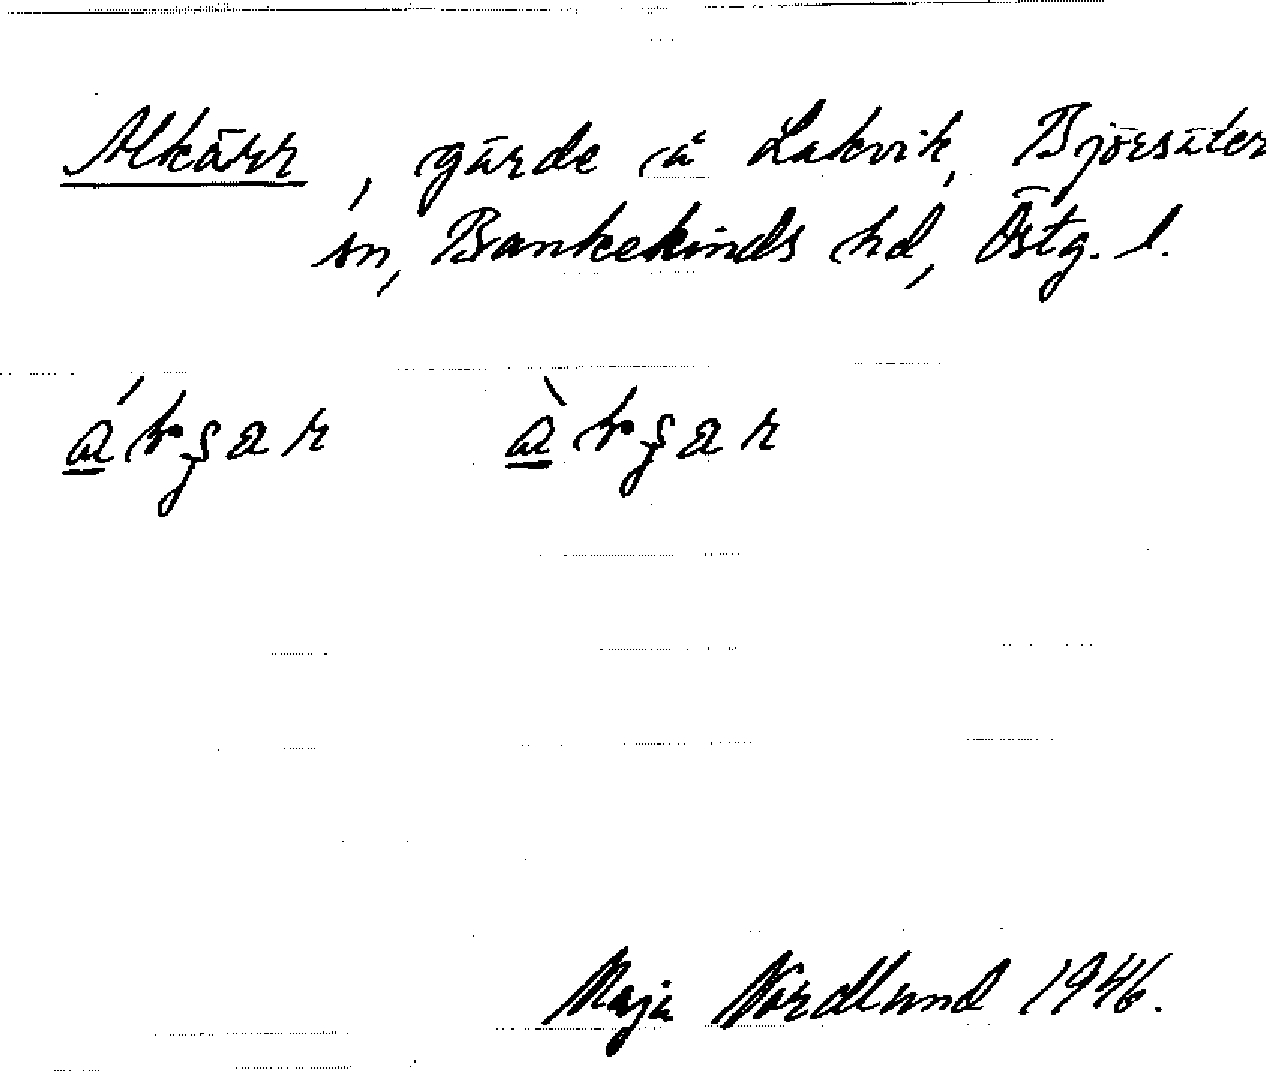 Alkärr, gärde å Lakvik, Björsäter
sn, Bankekinds hd, Östg. l.
Maja Nordlund 1946.